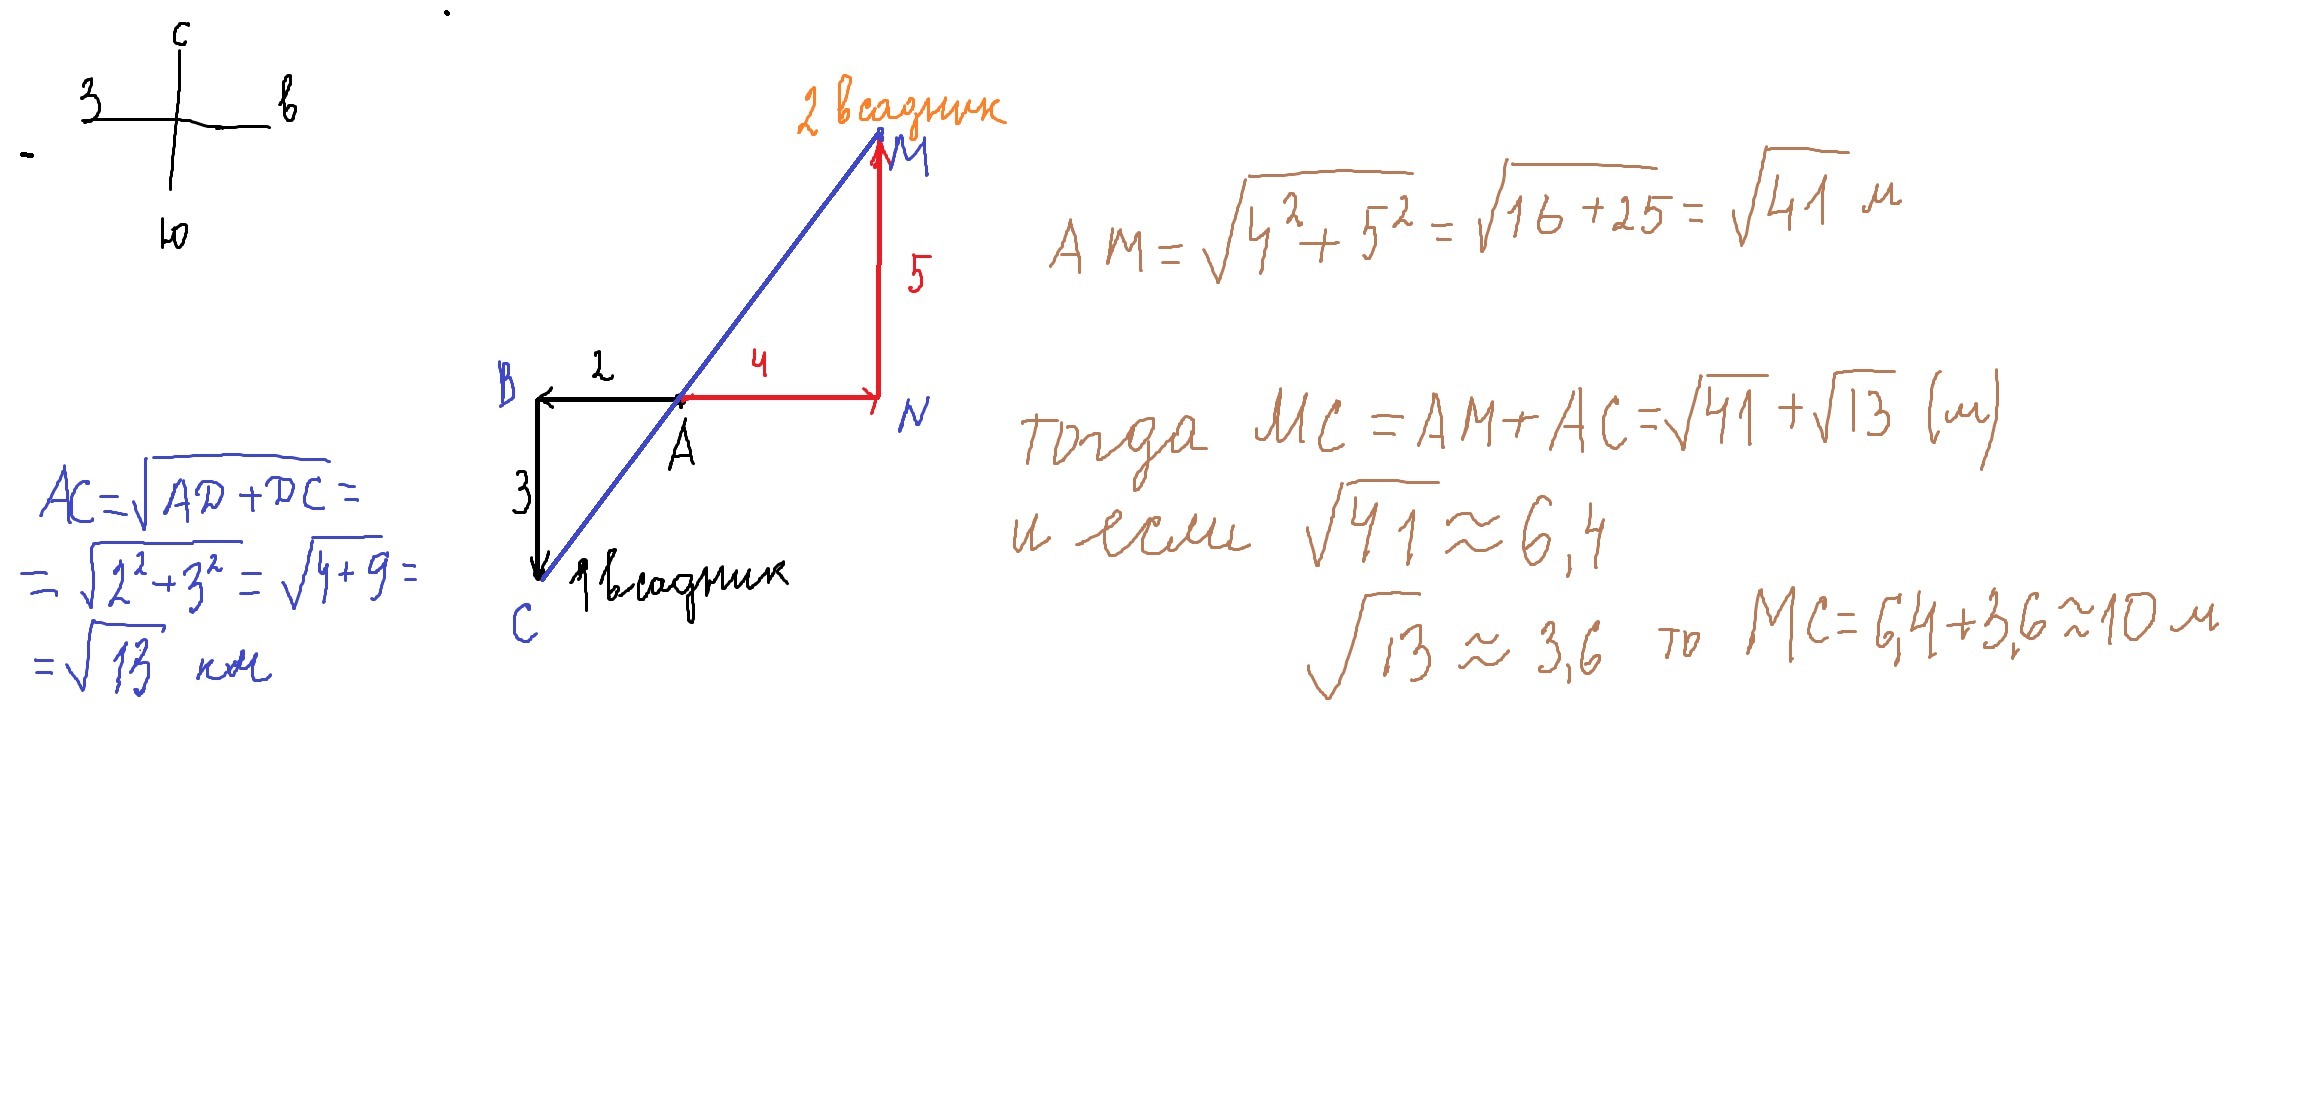 С
З в
Ю
2 всадник
M
5
B 2 4
N
A
3
1 всадник
C
AC=√AD+DC=
=√2²+3²=√4+9=
=√13 км
AM=√4²+5²=√16+25=√41 м
тогда MC=AM+AC=√41+√13 (м)
и если √41≈6,4
√13≈3,6 то MC=6,4+3,6≈10 м